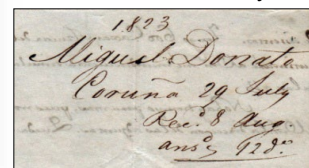 1823
Miguel Donato
Coruña 29 July
Rec.d 8 Aug.
ans.d 9 d.o